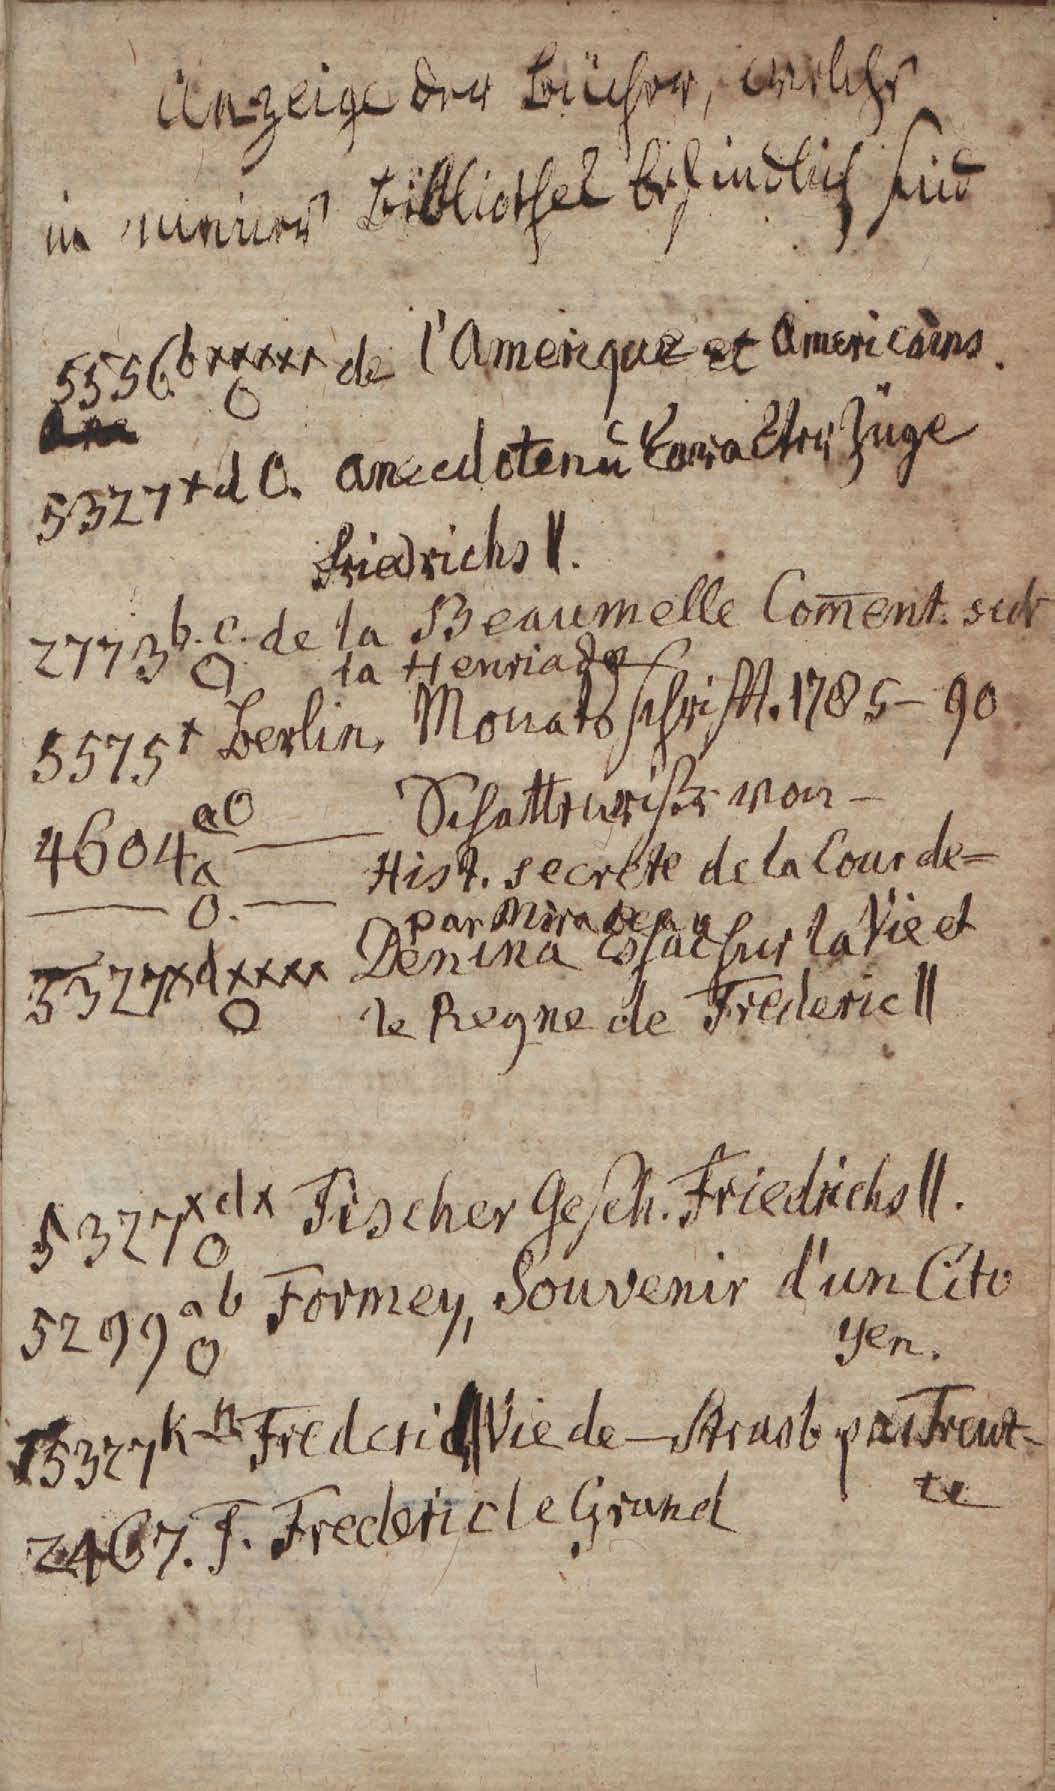 Anzeige der Bücher, welche
in meiner Bibliothek befindlich sind
5556.b xxxxx O de l'Amerique et Americains.
5327 x d O. Anecdoten u Karakter Züge
Friedrichs II.
2773 b.c. O de la Beaumelle Com̄ent. sur
la Henriade
5575 x Berlin. Monatsschrift. 1785-90
4604 a O a — Schattenrisse von —
— O. — Hist. secrete de la Cour de=
par Mirabeau
5327 x d xxxx O Denina Essai sur la Vie et
le Regne de Frederic II
5327 x d x O Fischer Gesch. Friedrichs II.
5299 a b O Formey, Souvenir d'un Cito
yen.
5327 k-n Frederic II Vie de — Strasb par Treut-
te
2467. F. Frederic le Grand